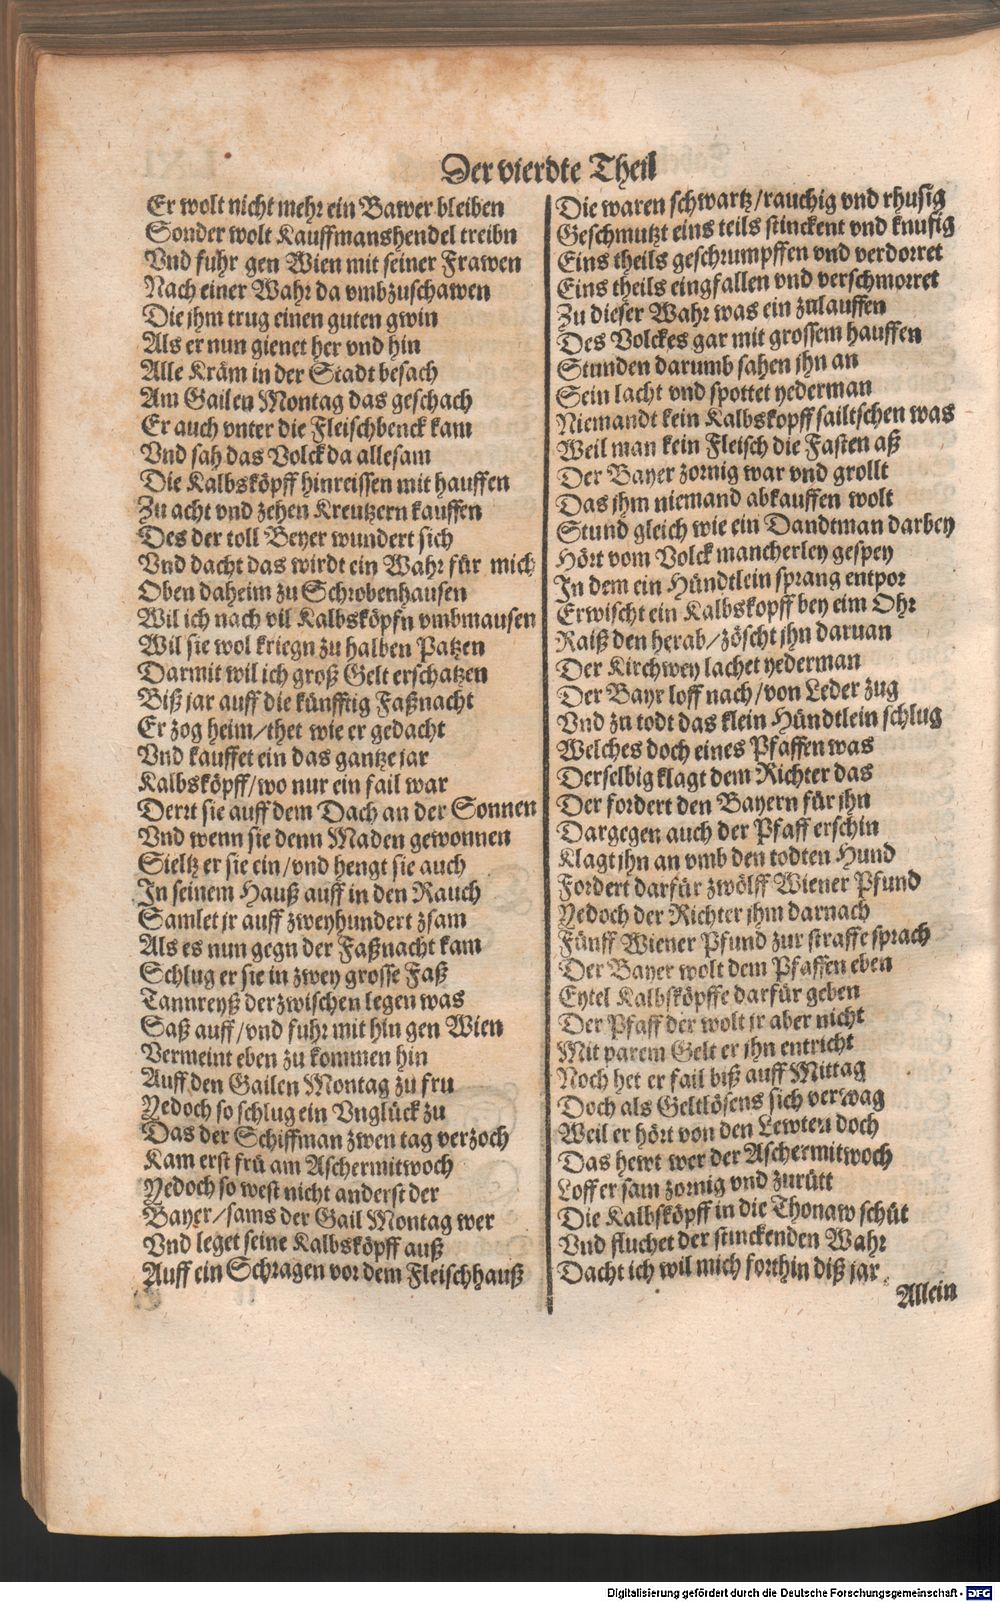 Der vierdte Theil
Er wolt nicht mehr ein Bawer bleiben
Sonder wolt Kauffmanshendel treibn
Vnd fuhr gen Wien mit seiner Frawen
Nach einer Wahr da vmbzuschawen
Die jhm trug einen guten gwin
Als er nun gienet her vnd hin
Alle Kräm in der Stadt besach
Am Gailen Montag das geschach
Er auch vnter die Fleischbenck kam
Vnd sah das Volck da allesam
Die Kalbsköpff hinreissen mit hauffen
Zu acht vnd zehen Kreutzern kauffen
Des der toll Beyer wundert sich
Vnd dacht das wirdt ein Wahr für mich
Oben daheim zu Schrobenhausen
Wil ich nach vil Kalbsköpfn vmbmausen
Wil sie wol kriegn zu halben Patzen
Darmit wil ich groß Gelt erschatzen
Biß jar auff die künfftig Faßnacht
Er zog heim/thet wie er gedacht
Vnd kauffet ein das gantze jar
Kalbsköpff/wo nur ein fail war
Derrt sie auff dem Dach an der Sonnen
Vnd wenn sie denn Maden gewonnen
Sieltz er sie ein/vnd hengt sie auch
In seinem Hauß auff in den Rauch
Samlet jr auff zweyhundert zsam
Als es nun gegn der Faßnacht kam
Schlug er sie in zwey grosse Faß
Tannreyß derzwischen legen was
Saß auff/vnd fuhr mit hin gen Wien
Vermeint eben zu kommen hin
Auff den Gailen Montag zu fru
Yedoch so schlug ein Vnglück zu
Das der Schiffman zwen tag verzoch
Kam erst frü am Aschermitwoch
Yedoch so west nicht anderst der
Bayer/sams der Gail Montag wer
Vnd leget seine Kalbsköpff auß
Auff ein Schragen vor dem Fleischhauß
Die waren schwartz/rauchig vnd rhusig
Geschmutzt eins teils stinckent vnd knufig
Eins theils geschrumpffen vnd verdorret
Eins theils eingfallen vnd verschmorret
Zu dieser Wahr was ein zulauffen
Des Volckes gar mit grossem hauffen
Stunden darumb sahen jhn an
Sein lacht vnd spottet yederman
Niemandt kein Kalbskopff failtschen was
Weil man kein Fleisch die Fasten aß
Der Bayer zornig war vnd grollt
Das jhm niemand abkauffen wolt
Stund gleich wie ein Dandtman darbey
Hört vom Volck mancherley gespey
In dem ein Hündtlein sprang entpor
Erwischt ein Kalbskopff bey eim Ohr
Raiß den herab/zöscht jhn daruan
Der Kirchwey lachet yederman
Der Bayr loff nach/von Leder zug
Vnd zu todt das klein Hündtlein schlug
Welches doch eines Pfaffen was
Derselbig klagt dem Richter das
Der fordert den Bayern für jhn
Dargegen auch der Pfaff erschin
Klagt jhn an vmb den todten Hund
Fordert darfür zwölff Wiener Pfund
Yedoch der Richter jhm darnach
Fünff Wiener Pfund zur straffe sprach
Der Bayer wolt dem Pfaffen eben
Eytel Kalbsköpffe darfür geben
Der Pfaff der wolt jr aber nicht
Mit parem Gelt er jhn entricht
Noch het er fail biß auff Mittag
Doch als Geltlösens sich verwag
Weil er hört von den Lewten doch
Das hewt wer der Aschermitwoch
Loff er sam zornig vnd zurütt
Die Kalbsköpff in die Thonaw schüt
Vnd fluchet der stinckenden Wahr
Dacht ich wil mich forthin diß jar
Allein
Digitalisierung gefördert durch die Deutsche Forschungsgemeinschaft - DFG